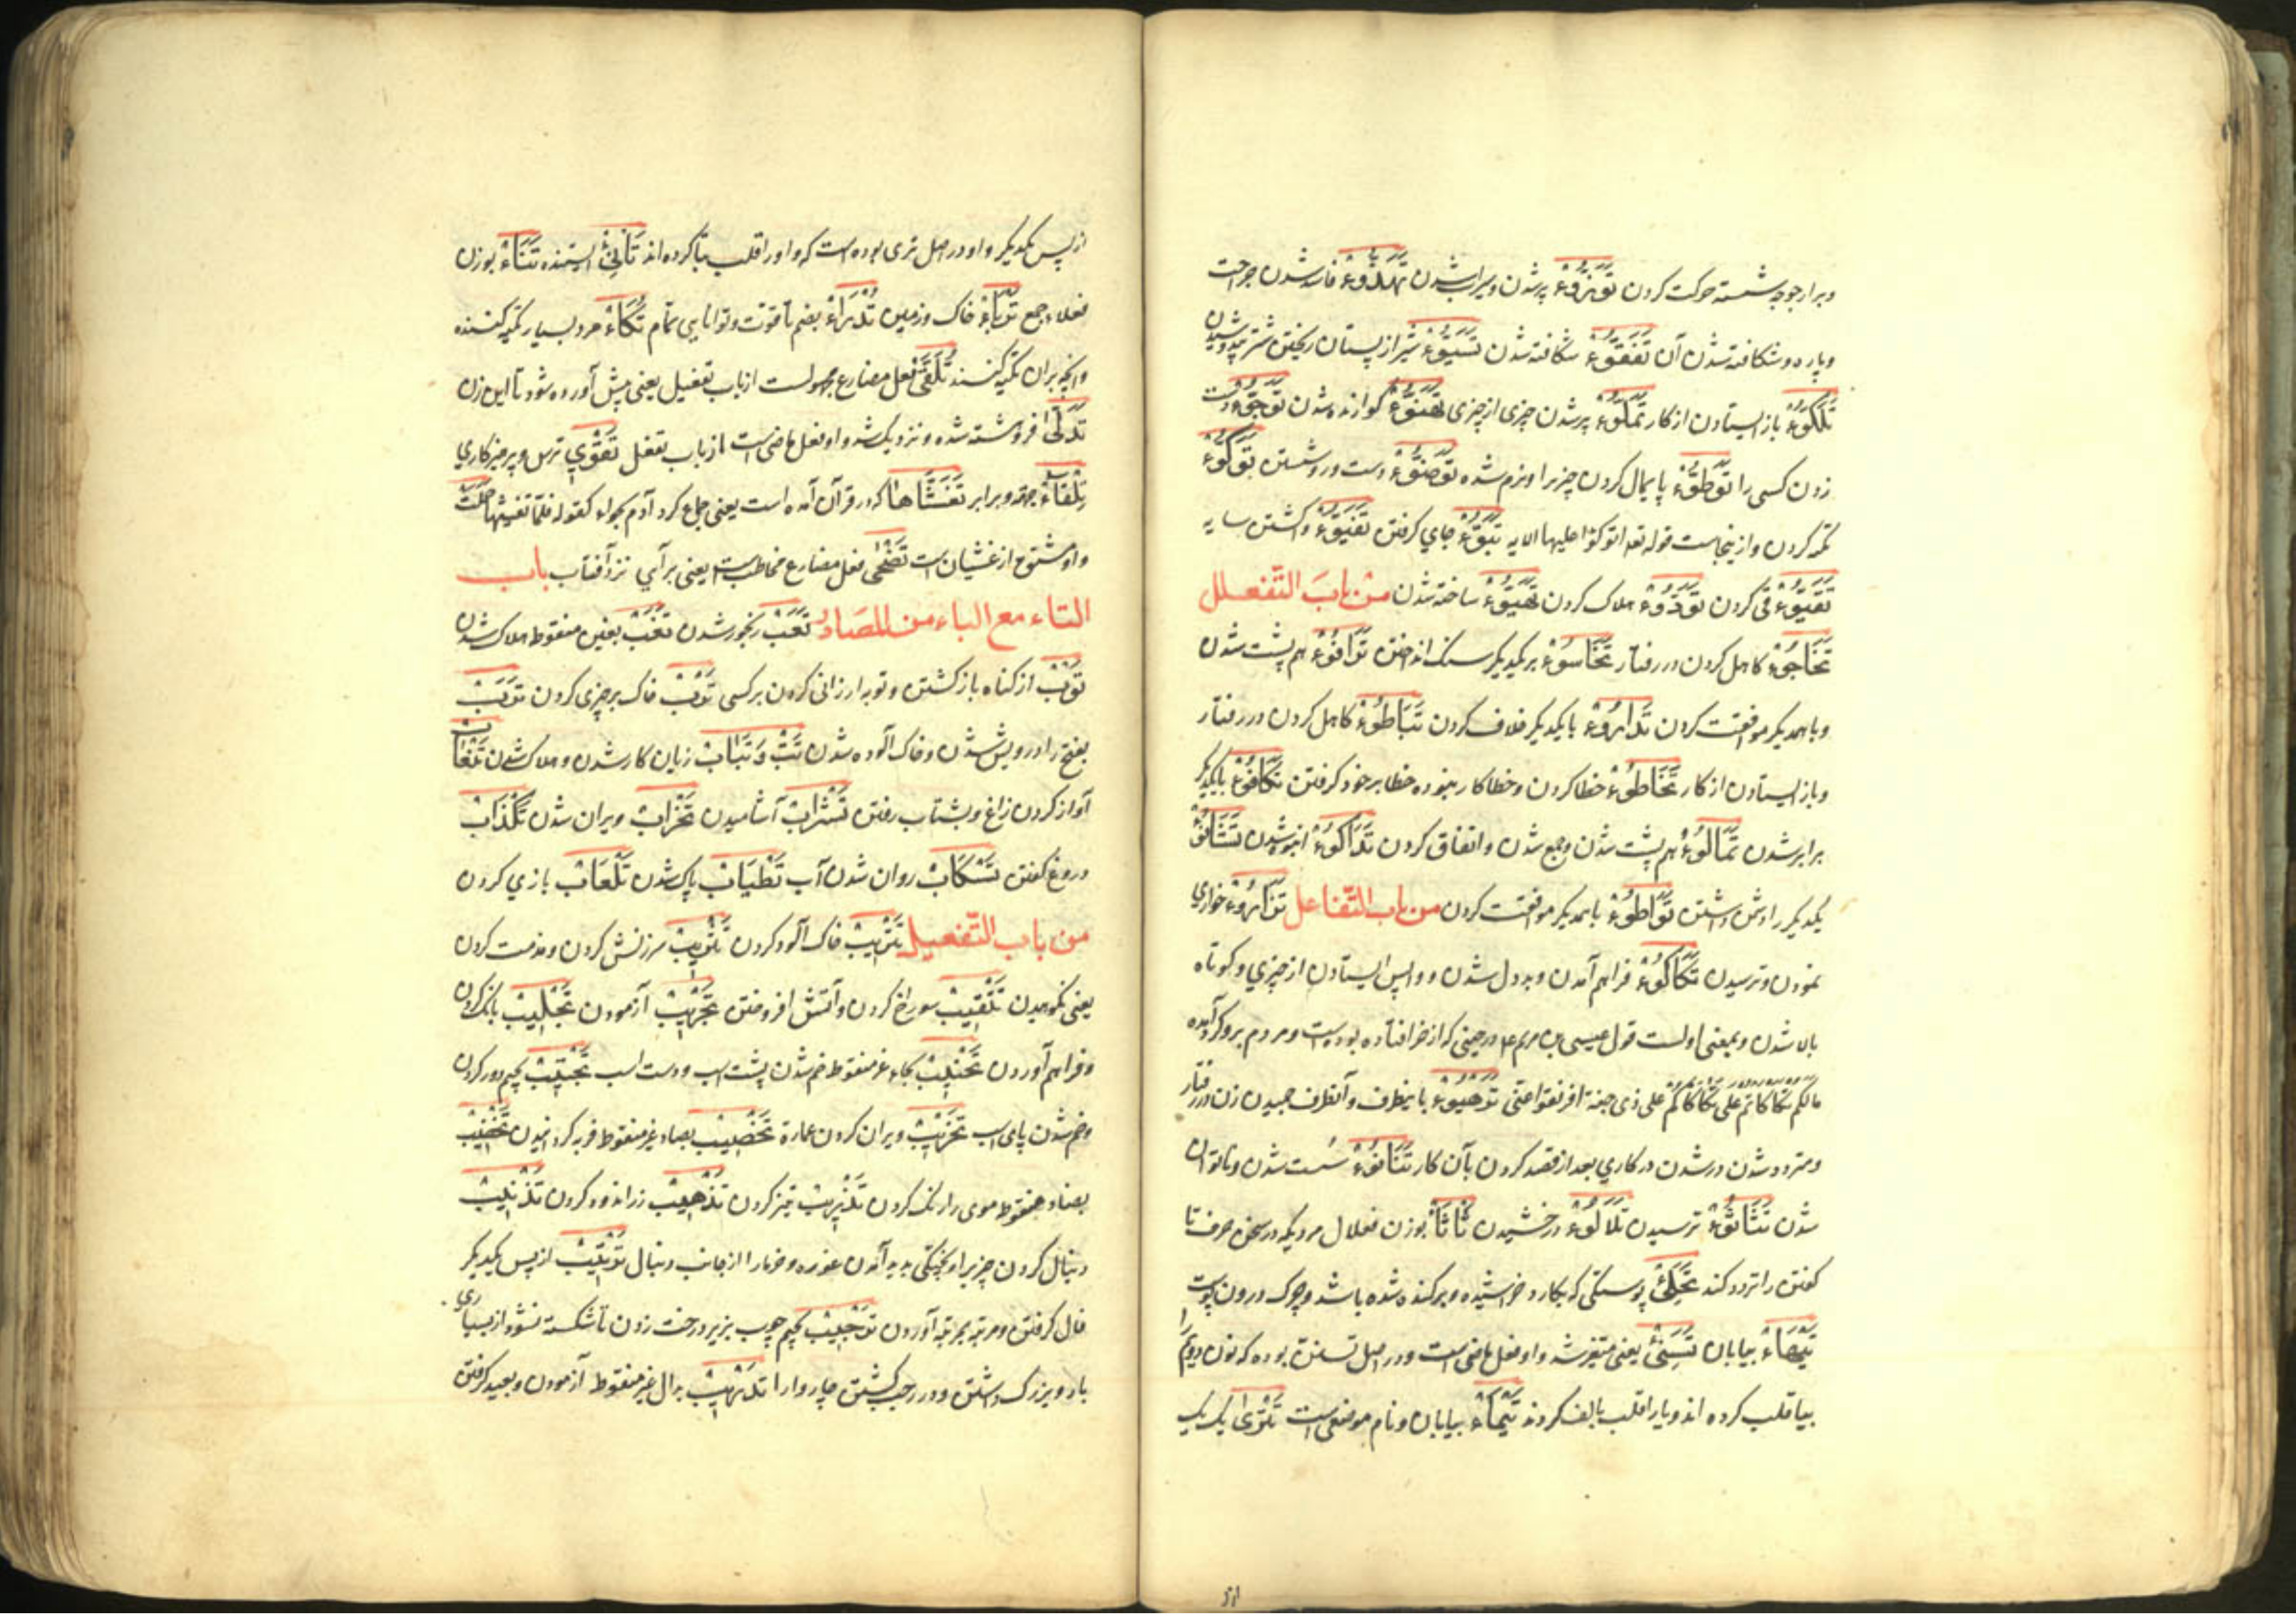 وبرابر جوجه شسته حرکت کردن تَوَزُّوءٌ پر شدن و سیراب شدن تَهَذُّوءٌ فاسد شدن جراحت
و پاره و شکافته شدن آن تَفَقُّوءٌ شکافته شدن تَسَيُّوءٌ شیر از پستان ریختن شتر
تَلَكُّوءٌ باز ایستادن از کار تَمَلُّوءٌ پر شدن چیزی از چیزی تَهَنُّوءٌ کوارنده شدن تَوَجُّوءٌ دست
زدن کسی را تَوَطُّوءٌ پایمال کردن چیز را و نرم شده تَوَضُّوءٌ دست و رو شستن تَوَكُّوءٌ
تکیه کردن و از ینجاست قوله تعه اتوکؤا علیها الایه تَبَوُّءٌ جای کرفتن تَفَيُّوءٌ و اکشتن سایه
تَقَيُّوءٌ قی کردن تَوَدُّوءٌ هلاک کردن تَهَيُّوءٌ ساخته شدن من باب التّفعلل
تَخَاجُوءٌ کاهل کردن در رفتار تَخَاسُوءٌ بر یکدیکر سنک انداختن تَرَافُوءٌ هم پشت شدن
و با همدیکر موافقت کردن تَدَارُوءٌ با یکدیکر خلاف کردن تَبَاطُوءٌ کاهل کردن در رفتار
و باز ایستادن از کار تَخَاطُوءٌ خطا کردن و خطا کار نبوده خطا بر خود کرفتن تَكَافُوءٌ با یکدیکر
برابر شدن تَمَالُوءٌ هم پشت شدن و جمع شدن و اتفاق کردن تَدَاكُوءٌ انبوه شدن تَشَانُوءٌ
یکدیکر را دشمن داشتن تَوَاطُوءٌ با همدیکر موافقت کردن من باب التّفاعل تَزَارُوءٌ خواری
نمودن و ترسیدن تَكَأكُوءٌ فراهم آمدن و بد دل شدن و واپس ایستادن از چیزی و کوتاه
بالا شدن و بمعنی اولست قول عیسی بن مریم ع م در حینی که از خر افتاده بوده است و مردم برو کرد آمده
مالکم تکأکأتم علی تکأکأکم علی ذی جنة افرنقعوا عنی تَوَهيُوءٌ باینطرف و آنطرف جبیدن زن در رفتار
و متردد شدن در شدن در کاری بعد از قصد کردن بآن کار تَثَأنُوءٌ سُست شدن و ناتوان
شدن تَثَأثُوءٌ ترسیدن تَلَألُوءٌ درخشیدن تَأتَاءٌ بوزن فعلال مردیکه در سخن حرف تا
کفتن را تردد کند تِحْلِئٌ پوستکی که بکارد خراشیده و برکنده شده باشد و چرک درون پوست
تَيْهَاءٌ بیابان تَسَنَّى یعنی متغیر شد و او فعل ماضی است و در اصل تسنن بوده که نون دویم
بیا قلب کرده اند و یا را قلب بالف کردند تَيْمَاءٌ بیابان و نام موضعی است تَتْرَى یک یک
از پس یکدیکر و او در اصل وتری بوده است که واو را قلب بتا کرده اند تَأنِئٌ ایستنده تُنَاءٌ بوزن
فعلاء جمع تَوْبَاءٌ خاک و زمین تُدْرَاءٌ بضم تا قوت و توانایی تمام تُكَاءٌ مرد بسیار تکیه کننده
و آنچه بران تکیه کنند تُلَقَّى فعل مضارع مجهولست از باب تفعیل یعنی پیش آورده شود تا این زن
تَدَلَّى فروشته شده و نزدیک شد و او فعل ماضی است از باب تفعل تَقْوَي ترس و پرهیزکاری
تِلْقَاءٌ جهة و برابر تَغَشَّاهَا که در قرآن آمده است یعنی جماع کرد آدم بحواء کقوله فلمّا تغشیها حَمَلَتْ
و او مشتق از غشیان است تَضْحَى فعل مضارع مخاطب است یعنی برآیی نزد آفتاب باب
التاء مع الباء من المصادر تَعَبٌ رنجور شدن تَغَبٌ بغین منقوط هلاک شدن
تَوْبٌ از کناه باز کشتن و توبه ارزانی کردن بر کسی تَرْبٌ خاک بر چیزی کردن تَرَبٌ
بفتح را درویش شدن و خاک آلوده شدن تَبٌّ وَتَبَابٌ زیان کار شدن و هلاک شدن تَنْعَابٌ
آواز کردن زاغ و بشتاب رفتن تَشْرَابٌ آشامیدن تَخْرَابٌ ویران شدن تَكْذَابٌ
دروغ کفتن تَسْكَابٌ روان شدن آب تَطْيَابٌ پاک شدن تَلْعَابٌ بازی کردن
من باب التّفعیل تَتْرِيبٌ خاک آلود کردن تَثْرِيبٌ سرزنش کردن و مذمت کردن
یعنی نکوهیدن تَثْقِيبٌ سوراخ کردن و آتش افروختن تَجْرِيبٌ آزمودن تَجْلِيبٌ بانک کردن
و فراهم آوردن تَحْنِيبٌ بحاء غیر منقوط خم شدن پشت اسب و دست اسب تَجْنِيبٌ بجیم دور کردن
و خم شدن پای اسب تَخْرِيبٌ ویران کردن عمارة تَخْصِيبٌ بصاد غیر منقوط فربه کردانیدن تَخْضِيبٌ
بضاد منقوط موی را رنک کردن تَذْرِيبٌ تیز کردن تَذْهِيبٌ زراندود کردن تَذْنِيبٌ
دنبال کردن چیز را و پختکی پدید آمدن غوره و خرما را از جانب دنبال تَرْتِيبٌ از پس یکدیکر
فال کرفتن و مرتبه بمرتبه آوردن تَرْجِيبٌ بجیم چوب بزیر درخت زدن تا شکسته نشود از بسیاری
بار و بزرک داشتن و در رجب کشتن چاروا را تَدْرِيبٌ بدال غیر منقوط آزمودن و بعید کرفتن
از